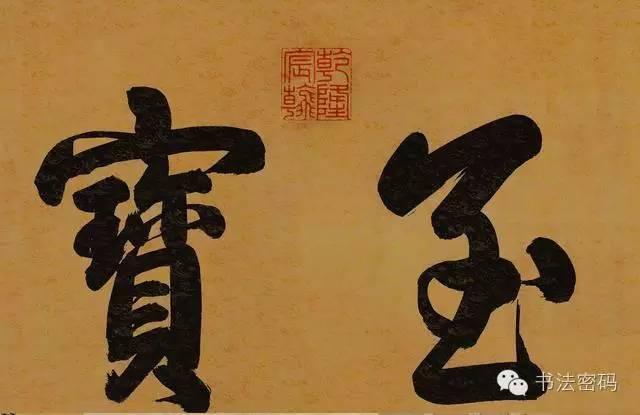 乾隆
宸翰
至寶
书法密码